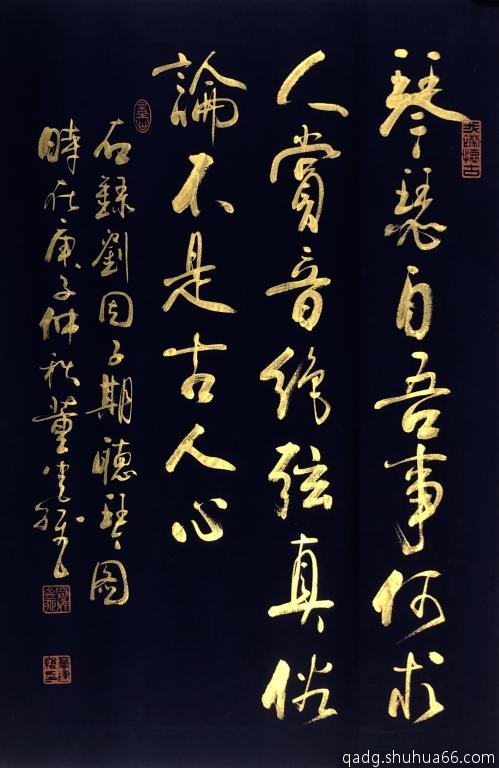 琴瑟自吾事何求
人賞音絶弦真俗
論不是古人心
右録劉因子期聽琴圖
時在庚子仲秋董堂
qadg.shuhua66.com